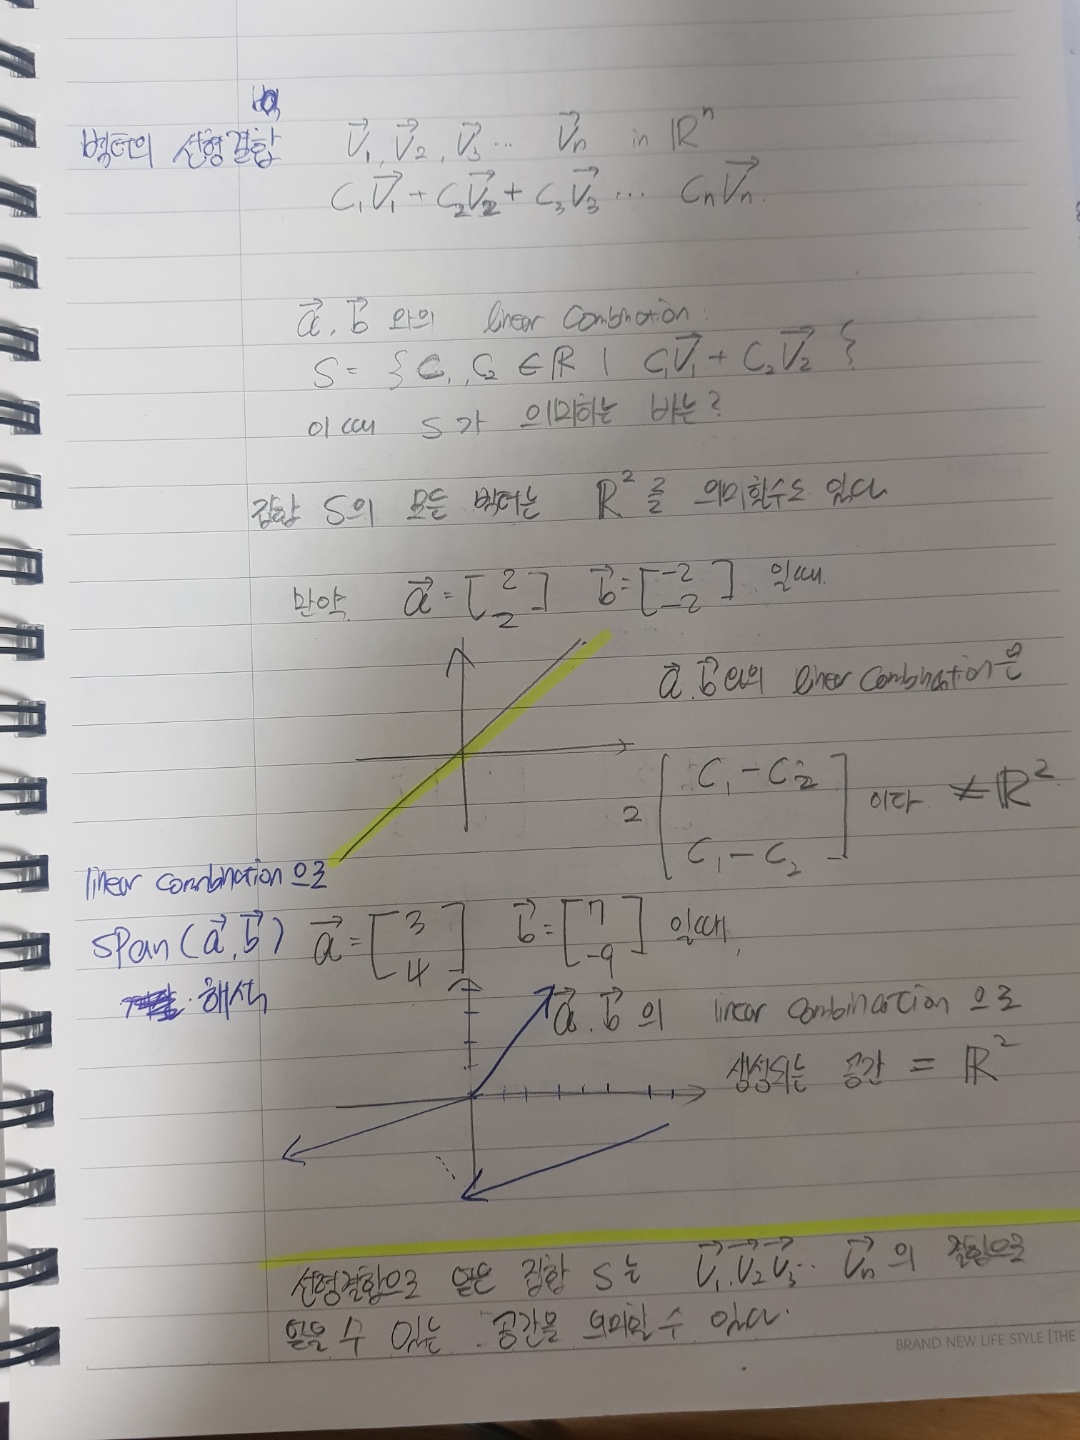 벡터의 선형결합 V₁, V₂, V₃... Vₙ in ℝⁿ
C₁V₁ + C₂V₂ + C₃V₃ ... CₙVₙ.
a, b 와의 linear combination:
S = { C₁, C₂ ∈ ℝ | C₁V₁ + C₂V₂ }
이때 S가 의미하는 바는?
집합 S의 모든 벡터는 ℝ²를 의미할수도 있다
만약 a = [2 2] b = [-2 -2] 일때
a, b와의 linear combination은
2 [C₁-C₂ C₁-C₂] 이다 ≠ ℝ²
linear combination으로
span(a, b) a = [3 4] b = [7 -9] 일때,
해석
a, b의 linear combination으로
생성되는 공간 = ℝ²
선형결합으로 얻은 집합 S는 V₁, V₂, V₃... Vₙ의 결합으로
얻을 수 있는 공간을 의미할 수 있다.
BRAND NEW LIFE STYLE [THE